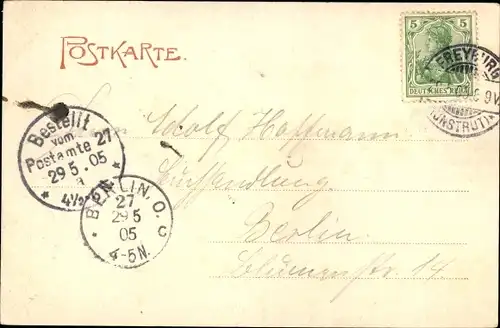 POSTKARTE.
5 5
DEUTSCHES REICH
FREYBURG
(UNSTRUT)
Bestellt
vom
Postamte 27
29 5 . 05
* 4½ *
BERLIN. O.
27
29 5
05
4-5N.
Adolf Hoffmann
Berlin.
Blumenstr. 14